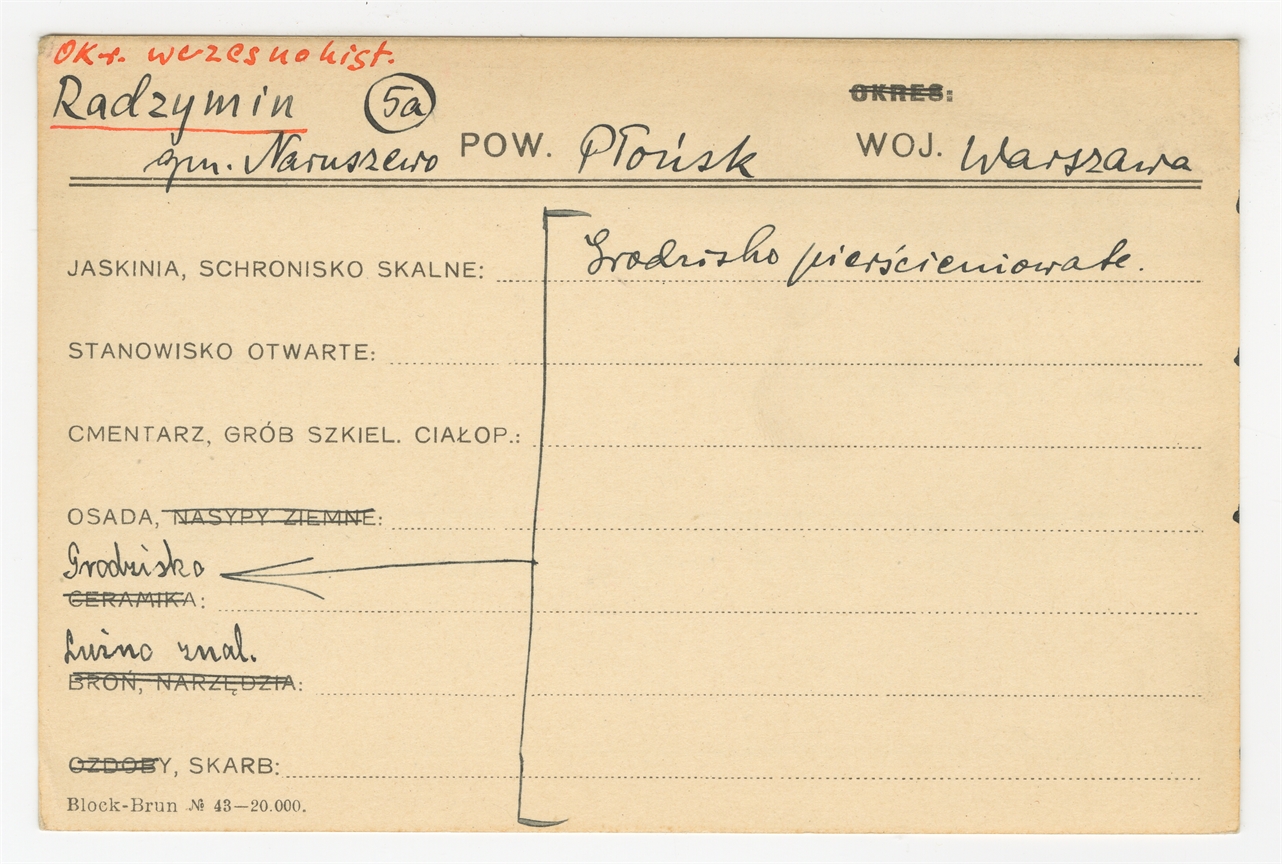 Okr. wczesnohist.
Radzymin 5a OKRES:
gm. Naruszewo POW. Płońsk WOJ. Warszawa
JASKINIA, SCHRONISKO SKALNE: Grodzisko pierścieniowate.
STANOWISKO OTWARTE:
CMENTARZ, GRÓB SZKIEL. CIAŁOP.:
OSADA, NASYPY ZIEMNE:
Grodzisko
CERAMIKA:
Luźno znal.
BROŃ, NARZĘDZIA:
OZDOBY, SKARB:
Block-Brun № 43—20.000.